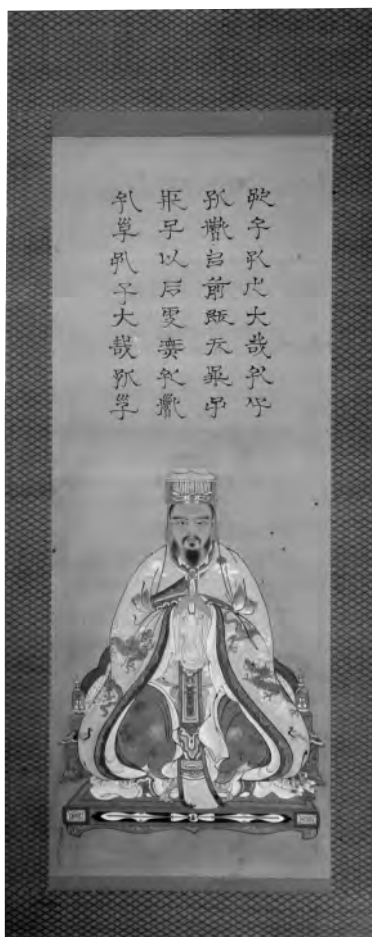 孔子孔子大哉孔子
孔子㠯前既无孔子
孔子以后更無孔子
孔子孔子大哉孔子